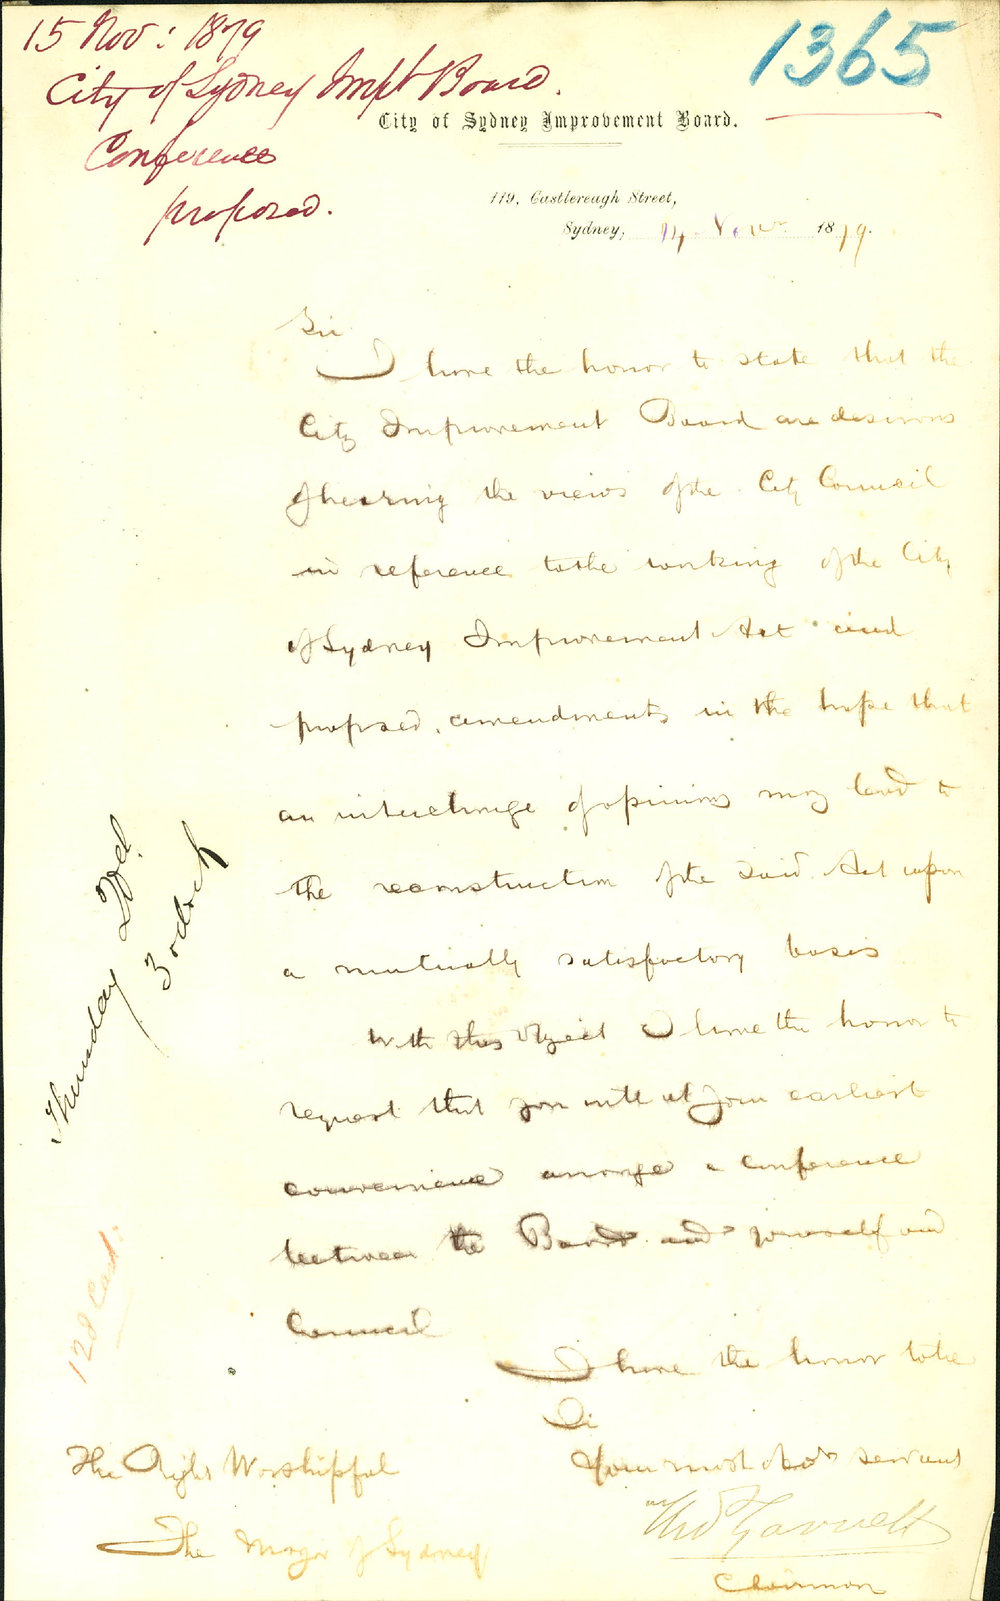 15 Nov: 1879
City of Sydney Impt Board.
Conference
proposed.
1365
City of Sydney Improvement Board.
119, Castlereagh Street,
Sydney, 14 Novr 1879.
Sir
I have the honor to state that the
City Improvement Board are desirous
of hearing the views of the City Council
in reference to the working of the City
of Sydney Improvement Act and
proposed amendments in the hope that
an interchange of opinions may lead to
the reconstruction of the said Act upon
a mutually satisfactory basis
With this object I have the honor to
request that you will at your earliest
convenience arrange a conference
between the Board and yourself and
Council
I have the honor to be
Sir
Your most obdt servant
Garrett
Chairman
The Right Worshipful
The Mayor of Sydney
Thursday
3 oclock
128